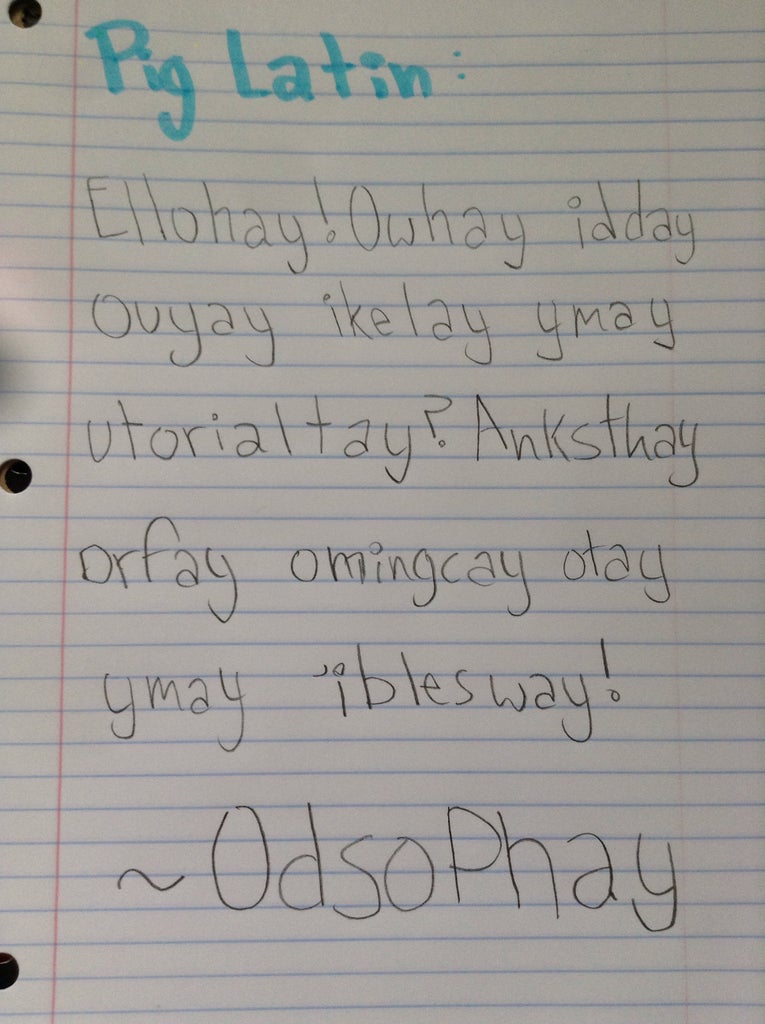 Pig Latin:
Ellohay! Owhay idday
ouyay ikelay ymay
utorialtay? Anksthay
orfay omingcay otay
ymay 'iblesway!
~OdsoPhay